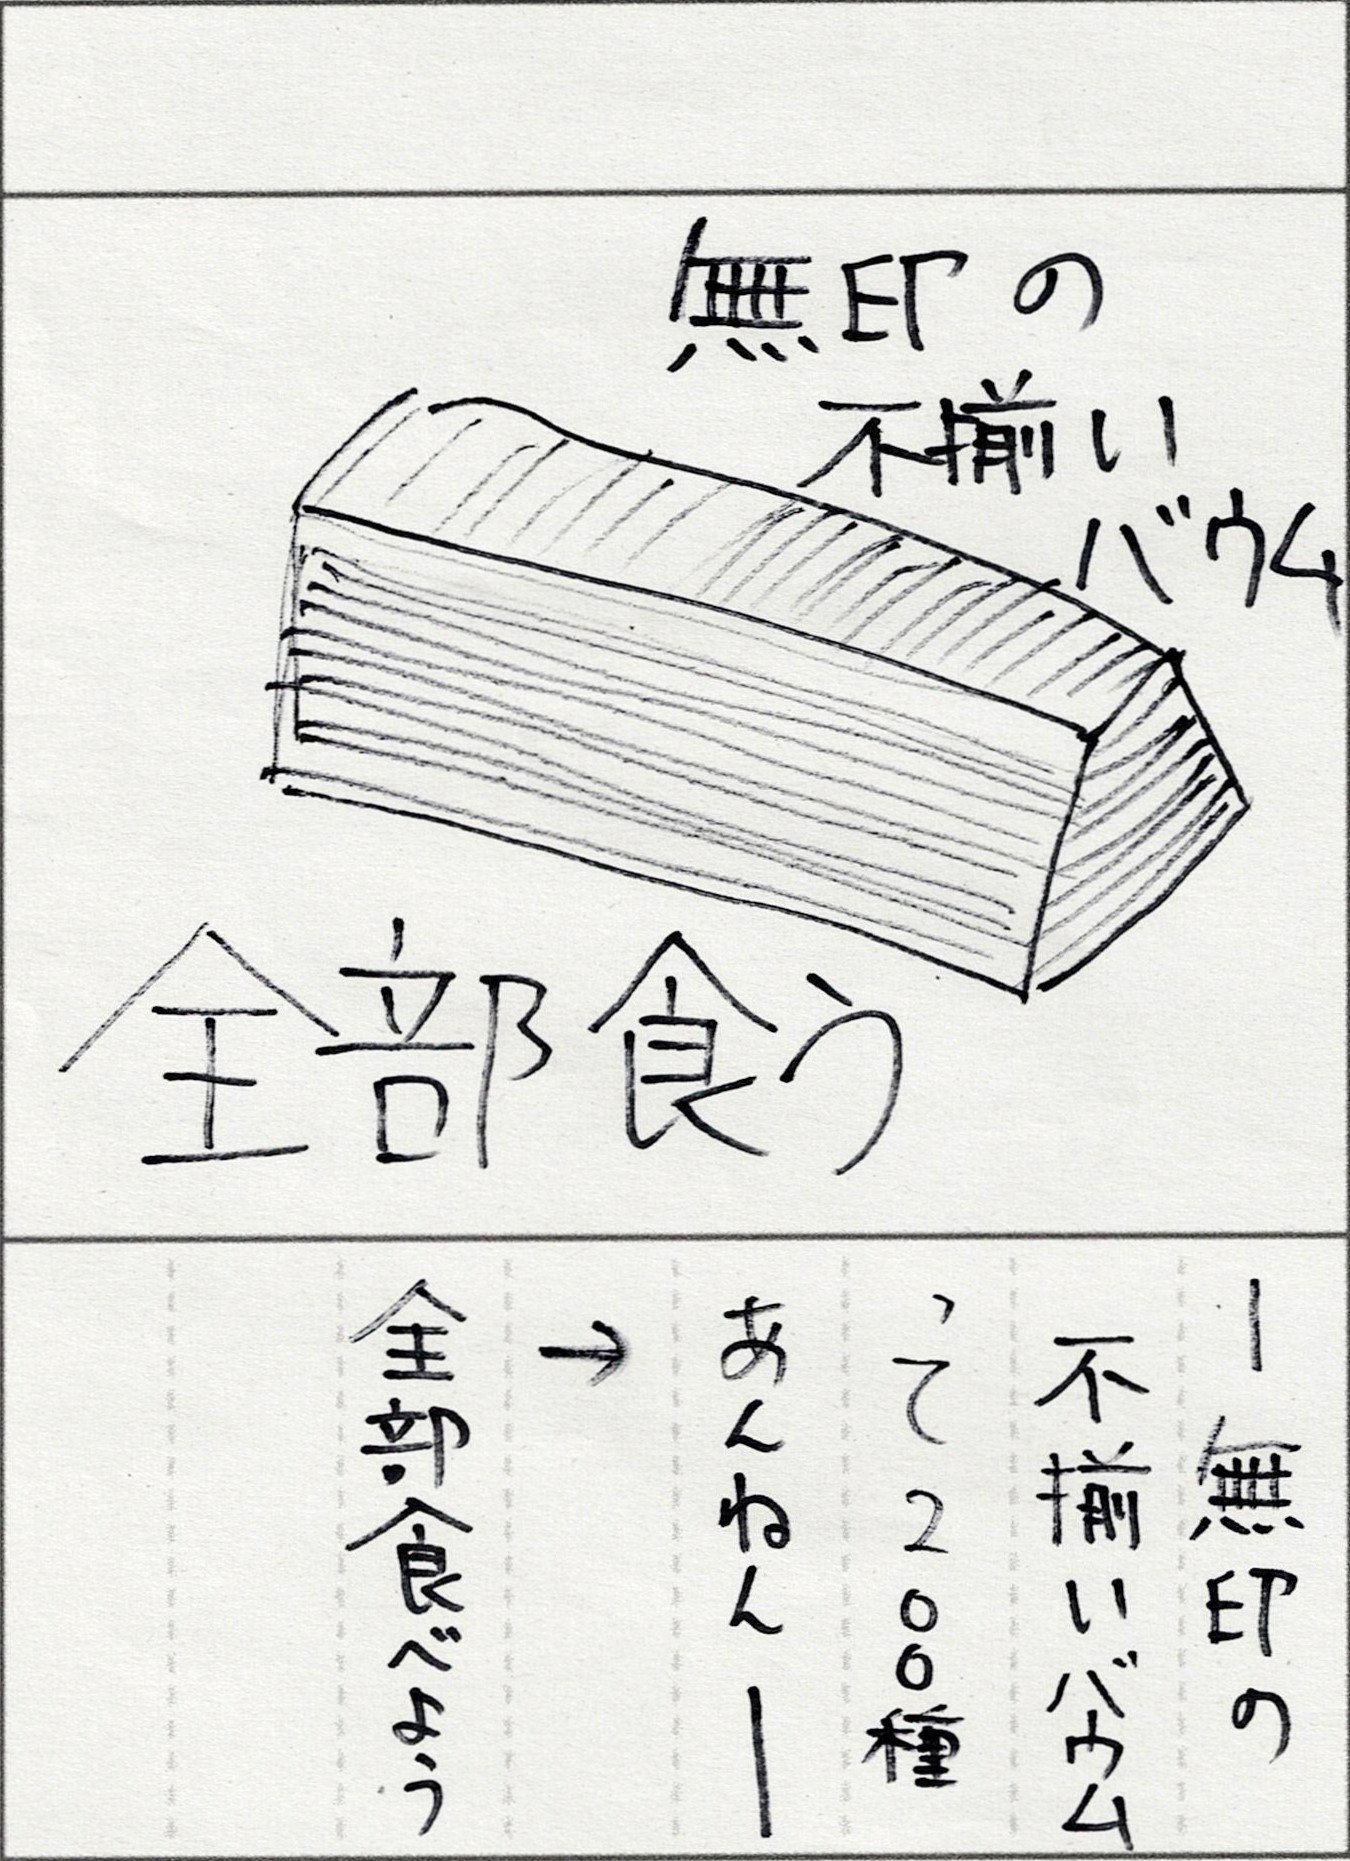 無印の
不揃い
バウム
全部食う
ー無印の
不揃いバウム
って200種
あんねんー
→
全部食べよう